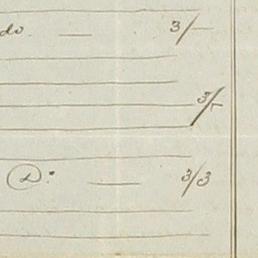 do. — 3/-
3/-
D: — 3/3